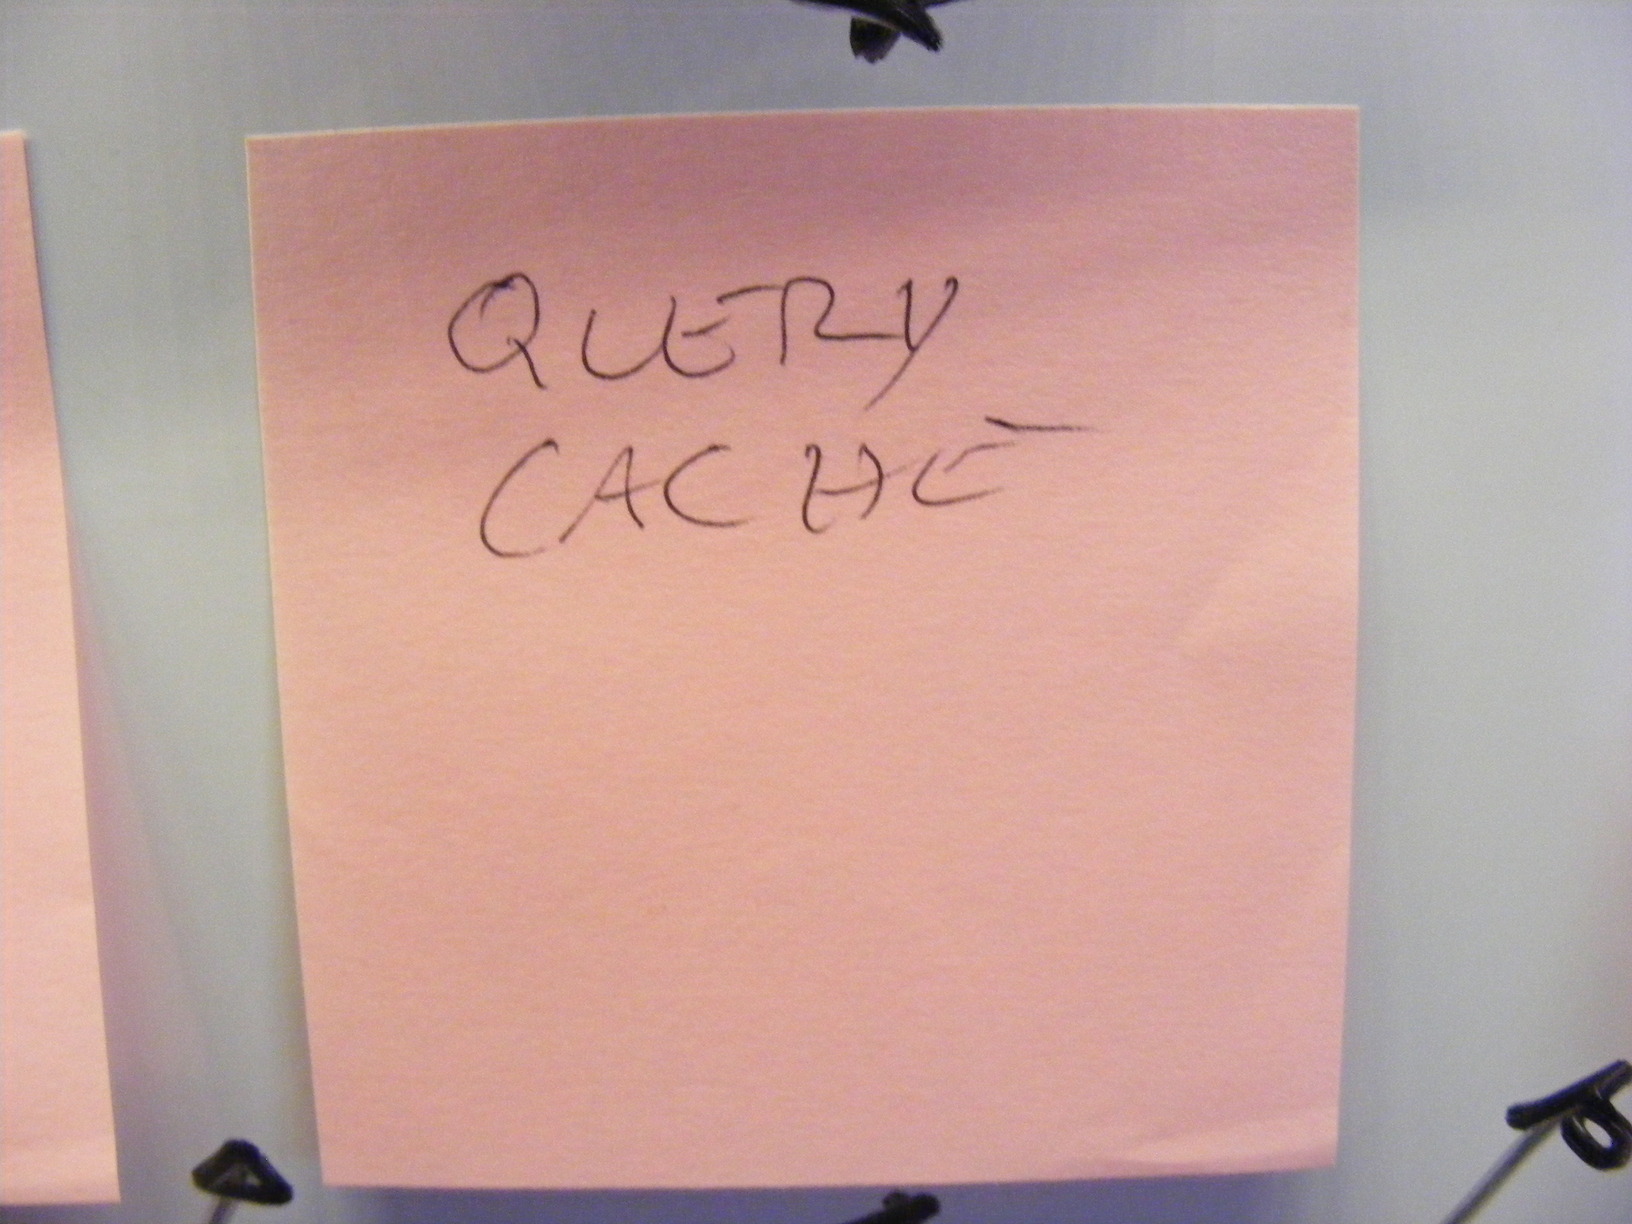 QUERY
CACHE